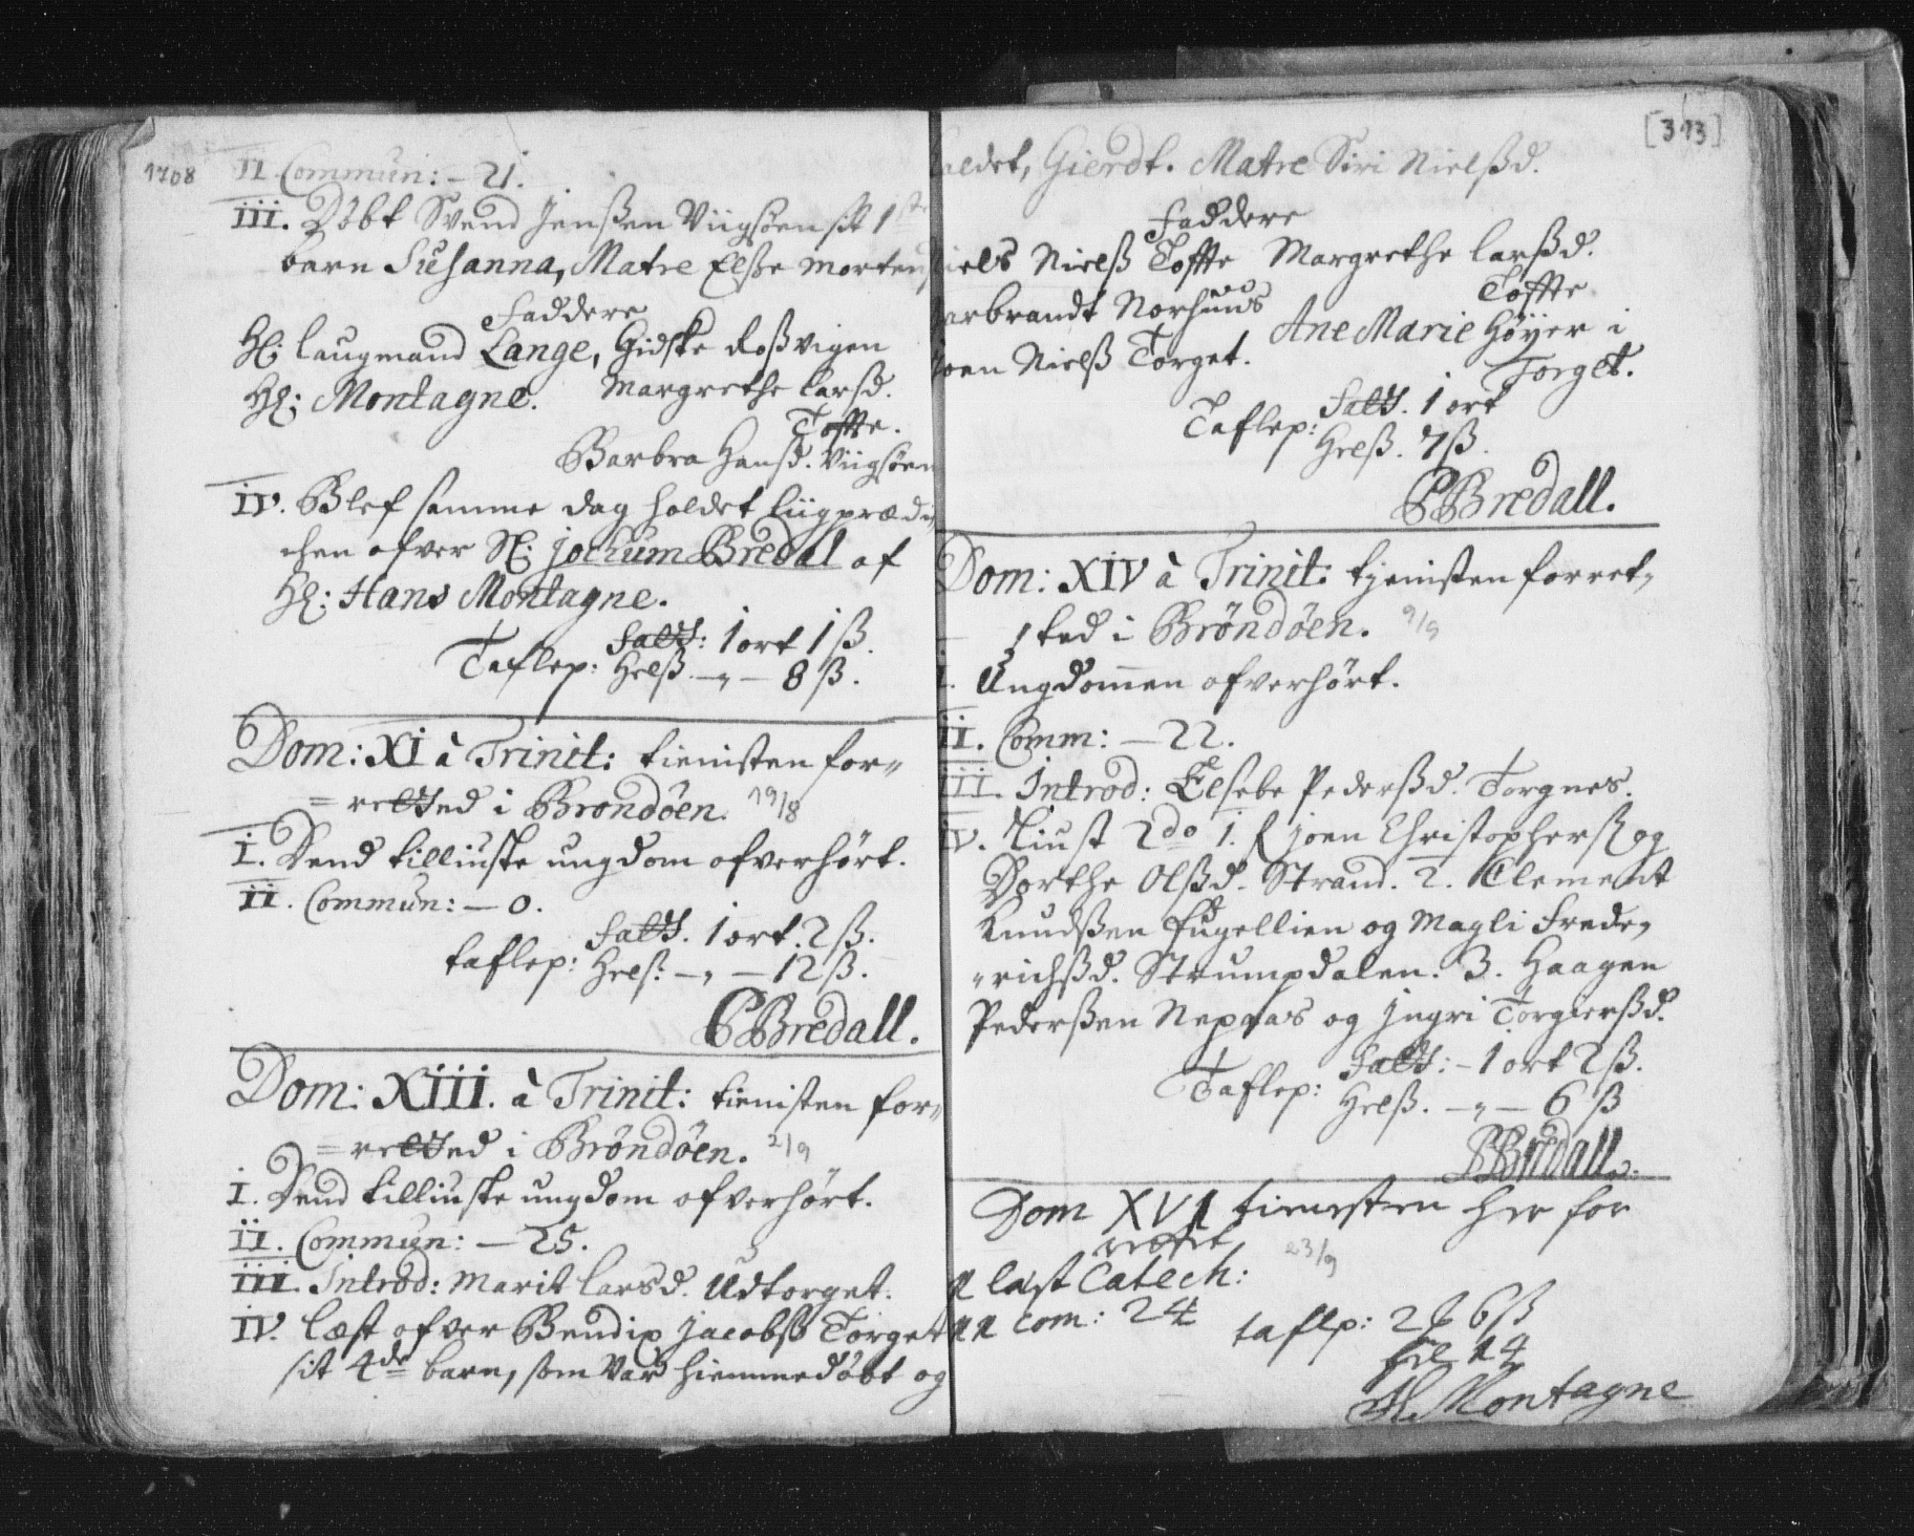 1708
II. Commun: – 21.
III. Döbt Svend Jenßen Viigsöen sit 1ste
barn Susanna, Matre Elsse Mortens
Faddere
Hl: Laugmand Lange, Gidske Roßvigen
Hl: Montagne. Margrethe Larsd.
Toffte.
Barbra Hansd. Viigsöen
IV. Blef samme dag holdet Liigprædi
chen ofver Sl: Jochum Bredal af
Hl: Hans Montagne.
Saltt: 1 ort 1 ß.
Taflep: Helß. –„– 8 ß.
Dom: XI à Trinit: tienisten for„
= retted i Bröndöen. 19/8
I. Dend tilliuste ungdom ofverhört.
II. Commun: – 0.
Saltt. 1 ort. 2 ß.
taflep: Helß: –„– 12 ß.
P Bredall.
Dom: XIII. à Trinit: tienisten for„
= retted i Bröndöen. 2/9
I. Dend tilliuste ungdom ofverhört.
II. Commun: – 25.
III. Introd: Marit Larsd. Udtorget.
IV. Læst ofver Bendix Jacobß Torget
sit 4de barn, som var hiemmedöbt og
[313]
kaldet, Gierdt. Matre Siri Nielßd.
Faddere
Niels Nielß Toffte Margrethe Larßd.
Toffte
Garbrandt Norhuus Ane Marie Höyer i
Joen Nielß Torget. Torget.
Saltt. 1 ort
Taflep: Helß. 7 ß.
P Bredall.
Dom: XIV à Trinit: tjenisten forret„
ted i Bröndöen. 9/9
I. Ungdomen ofverhört.
II. Comm: – 22.
III. Introd: Elsebe Pederßd. Torgnes.
IV. Liust 2do 1. f Joen Christopherß og
Dorthe Olßd. Strand. 2. Clement
Knudßen Fugellien og Magli Frede„
„richßd. Strumpdalen. 3. Haagen
Pederßen Nepaas og Jngri Torgierßd.
Saltt: – 1 ort 2 ß.
Taflep: Helß. –„– 6 ß
P Bredall.
Dom XVI tienesten her for
rettet 23/9
1 læst Catech:
11 com: 24 taflp: 2 6 ß
hel 14
H. Montagne